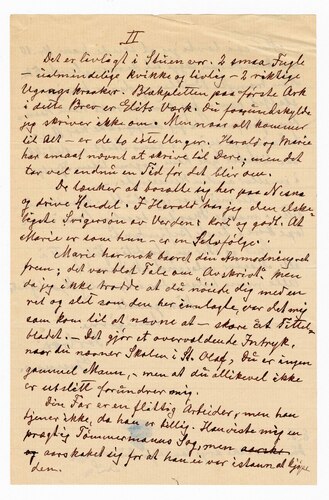 II
Det er livligt i Stuen vor. 2 smaa Fugle
– ualmindelige kvikke og livlig – 2 riktige
Ugangskraaker. Blækpletten paa første Ark
i dette Brev er Edits Værk. Du faar undskylde
jeg skriver ikke om. Men naar alt kommer
til Alt – er de to søte Unger. Harald og Marie
har smaat nevnt at skrive til Dere, men det
tar vel endnu en Tid før det blir om.
De tænker at bosætte sig her paa Nesna
og drive Handel. I Harald har jeg den elske-
ligste Svigersøn av Verden: kort og godt. At
Marie er som hun – er en Selvfølge.
Marie har nok baaret din Anmodning
frem; det var blot Tale om "Avskrift", men
da jeg ikke trodde at du nøide dig med en
ret og slet som den her innlagte, var det mig
som kom til at nævne at – skare æt Tittel-
bladet. – Det gjør et overvældende Intryk,
naar du nævner Skolen i St. Olaf, Du er ingen
gammel Mann, – men at du allikevel ikke
er utslitt forundrer mig.
Din Far er en flittig Arbeider, men han
tjener ikke, da han er billig. Han viste mig en
prægtig Tømmermanns Sag, men
og avskaket sig for at han ei var istand at kjøpe
den.